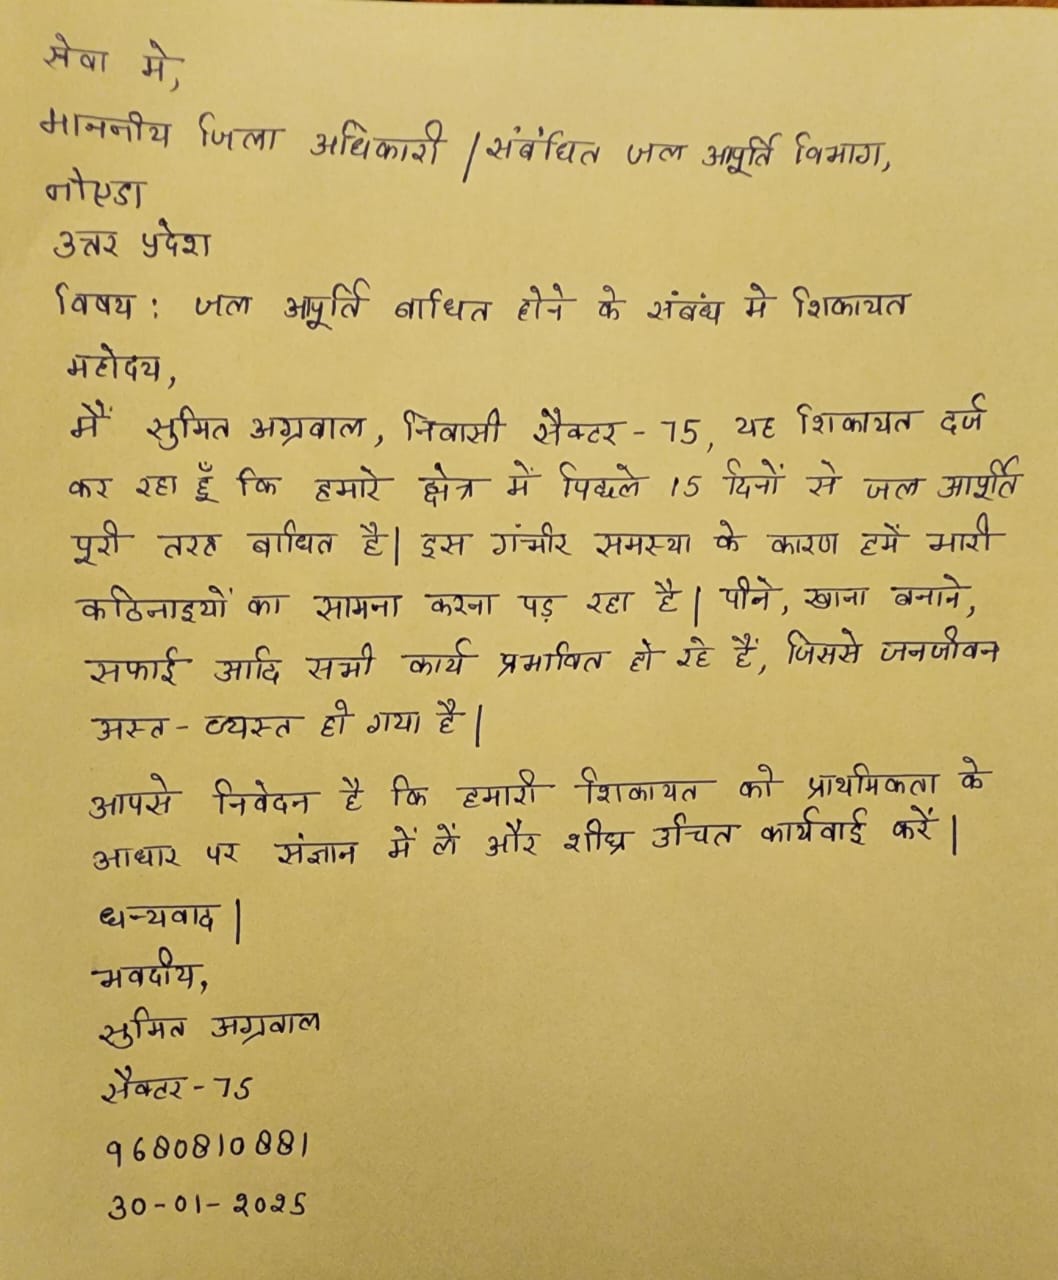 सेवा मे,
माननीय जिला अधिकारी / संबंधित जल आपूर्ति विभाग,
नोएडा
उत्तर प्रदेश
विषय : जल आपूर्ति बाधित होने के संबंध मे शिकायत
महोदय,
मैं सुमित अग्रवाल, निवासी सैक्टर - 75, यह शिकायत दर्ज
कर रहा हूँ कि हमारे क्षेत्र में पिछले 15 दिनों से जल आपूर्ति
पूरी तरह बाधित है| इस गंभीर समस्या के कारण हमें भारी
कठिनाइयों का सामना करना पड़ रहा है| पीने, खाना बनाने,
सफाई आदि सभी कार्य प्रभावित हो रहे हैं, जिससे जनजीवन
अस्त - व्यस्त हो गया है|
आपसे निवेदन है कि हमारी शिकायत को प्राथमिकता के
आधार पर संज्ञान में लें और शीघ्र उचित कार्यवाई करें|
धन्यवाद|
भवदीय,
सुमित अग्रवाल
सैक्टर - 75
9680810881
30-01-2025